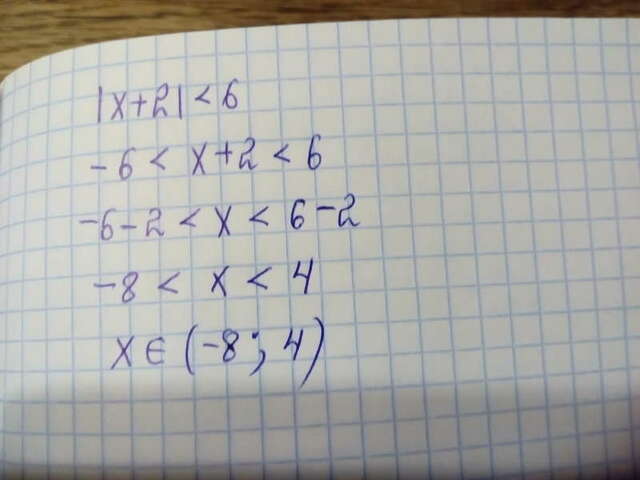 |x+2| < 6
-6 < x+2 < 6
-6-2 < x < 6-2
-8 < x < 4
x ∈ (-8; 4)